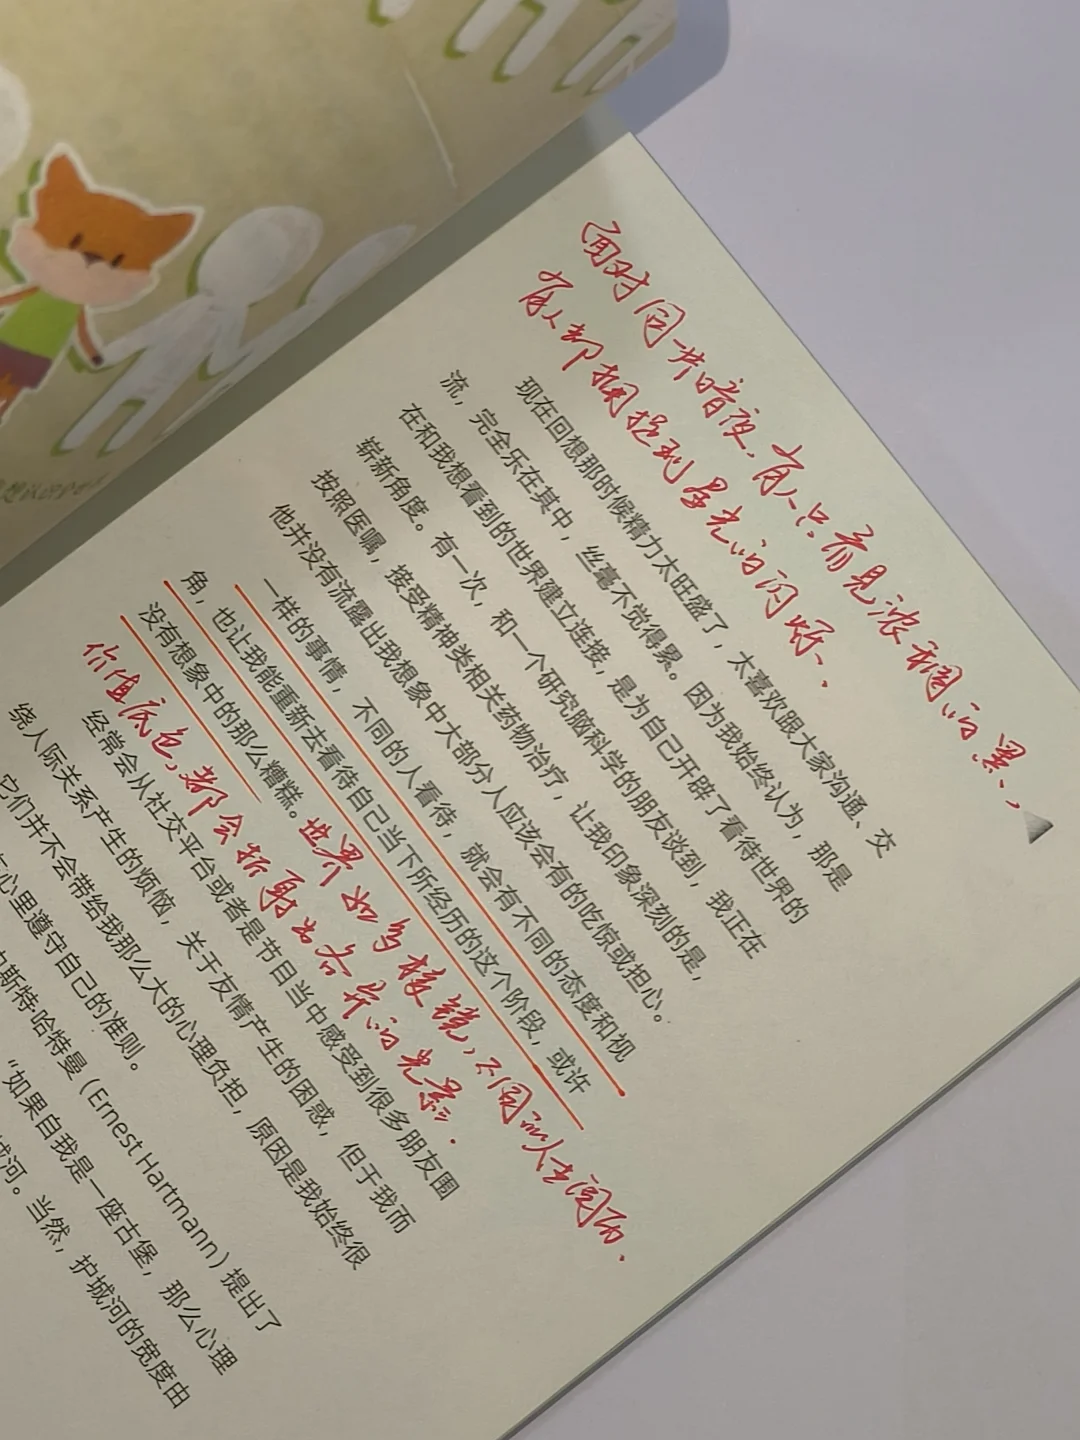 面对同一片暗夜，有人只看见浓稠的黑，
有人却拥抱到星光的闪烁、
现在回想那时候精力太旺盛了，太喜欢跟大家沟通、交
流，完全乐在其中，丝毫不觉得累。因为我始终认为，那是
在和我想看到的世界建立连接，是为自己开辟了看待世界的
崭新角度。有一次，和一个研究脑科学的朋友谈到，我正在
按照医嘱，接受精神类相关药物治疗，让我印象深刻的是，
他并没有流露出我想象中大部分人应该会有的吃惊或担心。
一样的事情，不同的人看待，就会有不同的态度和视
角，也让我能重新去看待自己当下所经历的这个阶段，或许
没有想象中的那么糟糕。
世界如多棱镜，不同的人生阅历、
价值底色，都会折射出各异的光影.
经常会从社交平台或者是节目当中感受到很多朋友围
绕人际关系产生的烦恼，关于友情产生的困惑，但于我而
它们并不会带给我那么大的心理负担，原因是我始终很
心里遵守自己的准则。
斯特·哈特曼（Ernest Hartmann）提出了
“如果自我是一座古堡，那么心理
城河。当然，护城河的宽度由